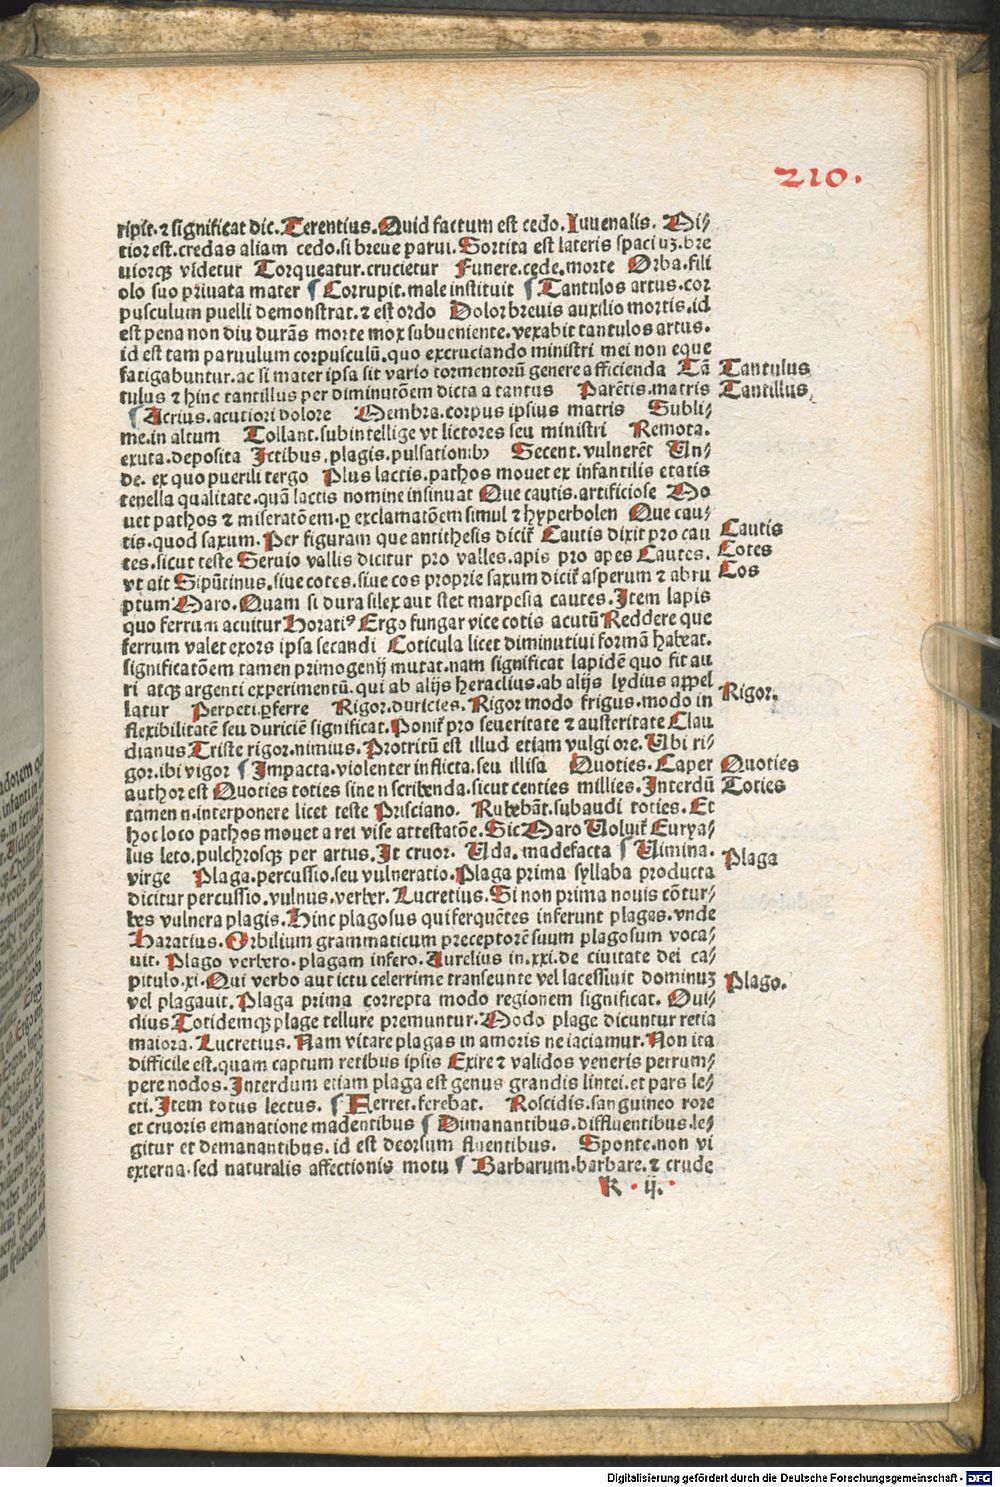 210.
ripit. ⁊ significat dic. Terentius. Quid factum est cedo. Iuuenalis. Di/
tior est. credas aliam cedo. si breue parui. Sortita est lateris spaciuꝫ. bre
uiorqꝫ videtur Torqueatur. crucietur Funere. cede. morte Orba. fili
olo suo priuata mater ⸿ Corrupit. male instituit ⸿ Tantulos artus. cor
pusculum puelli demonstrat. ⁊ est ordo Dolor breuis auxilio mortis. id
est pena non diu durãs morte mox subueniente. vexabit tantulos artus.
id est tam paruulum corpusculũ. quo excruciando ministri mei non eque
fatigabuntur. ac si mater ipsa sit vario tormentorũ genere afficienda Tã
tulus ⁊ hinc tantillus per diminutõem dicta a tantus Parẽtis. matris
⸿ Acrius. acutiori dolore Membra. corpus ipsius matris Subli/
me. in altum Tollant. subintellige vt lictores seu ministri Remota.
exuta. deposita Ictibus, plagis. pulsationibꝫ Secent. vulnerẽt Un/
de. ex quo puerili tergo Plus lactis. pathos mouet ex infantilis etatis
tenella qualitate. quã lactis nomine insinuat Que cautis. artificiose Mo
uet pathos ⁊ miseratõem. ꝑ exclamatõem simul ⁊ hyperbolen Que cau/
tis. quod saxum. Per figuram que antithesis dicit̃ Cautis dixit pro cau
tes. sicut teste Seruio vallis dicitur pro valles. apis pro apes Cautes.
vt ait Sipũtinus. siue cotes. siue cos proprie saxum dicit̃ asperum ⁊ abru
ptum Maro. Quam si dura silex aut stet marpesia cautes. Item lapis
quo ferrum acuitur Horatiꝰ Ergo fungar vice cotis acutũ Reddere que
ferrum valet exors ipsa secandi Coticula licet diminutiui formã habeat.
significatõem tamen primogenij mutat. nam significat lapidẽ quo fit au
ri atqꝫ argenti experimentũ. qui ab alijs heraclius. ab alijs lydius appel
latur Perpeti. ꝑferre Rigor. duricies. Rigor modo frigus. modo in
flexibilitatẽ seu duriciẽ significat. Ponit̃ pro seueritate ⁊ austeritate Clau
dianus Triste rigor. nimius. Protritũ est illud etiam vulgi ore. Ubi ri/
gor. ibi vigor ⸿ Impacta. violenter inflicta. seu illisa Quoties. Caper
author est Quoties toties sine n scribenda. sicut centies millies. Interdũ
tamen n. interponere licet teste Prisciano. Rubebãt. subaudi toties. Et
hoc loco pathos mouet a rei vise attestatõe. Sic Maro Uoluit̃ Eurya/
lus leto. pulchrosqꝫ per artus. It cruor. Uda. madefacta ⸿ Uimina.
virge Plaga. percussio. seu vulneratio. Plaga prima syllaba producta
dicitur percussio. vulnus. verber. Lucretius. Si non prima nouis cõtur/
bes vulnera plagis. Hinc plagosus qui ferquẽtes inferunt plagas. vnde
Haratius. Orbilium grammaticum preceptorẽ suum plagosum voca/
uit. Plago verbero. plagam infero. Aurelius in. xxi. de ciuitate dei ca/
pitulo. xi. Qui verbo aut ictu celerrime transeunte vel lacessiuit dominuꝫ
vel plagauit. Plaga prima correpta modo regionem significat. Oui/
dius Totidemqꝫ plage tellure premuntur. Modo plage dicuntur retia
maiora. Lucretius. Nam vitare plagas in amoris ne iaciamur. Non ita
difficile est. quam captum retibus ipsis Exire ⁊ validos veneris perrum/
pere nodos. Interdum etiam plaga est genus grandis lintei. et pars le/
cti. Item totus lectus. ⸿ Ferret. ferebat. Roscidis. sanguineo rore
et cruoris emanatione madentibus ⸿ Dimanantibus. diffluentibus. le/
gitur et demanantibus. id est deorsum fluentibus. Sponte. non vi
externa. sed naturalis affectionis motu ⸿ Barbarum. barbare. ⁊ crude
K . ij.
Tantulus
Tantillus
Cautis
Cotes
Cos
Rigor.
Quoties
Toties
Plaga
Plago.
Digitalisierung gefördert durch die Deutsche Forschungsgemeinschaft - DFG